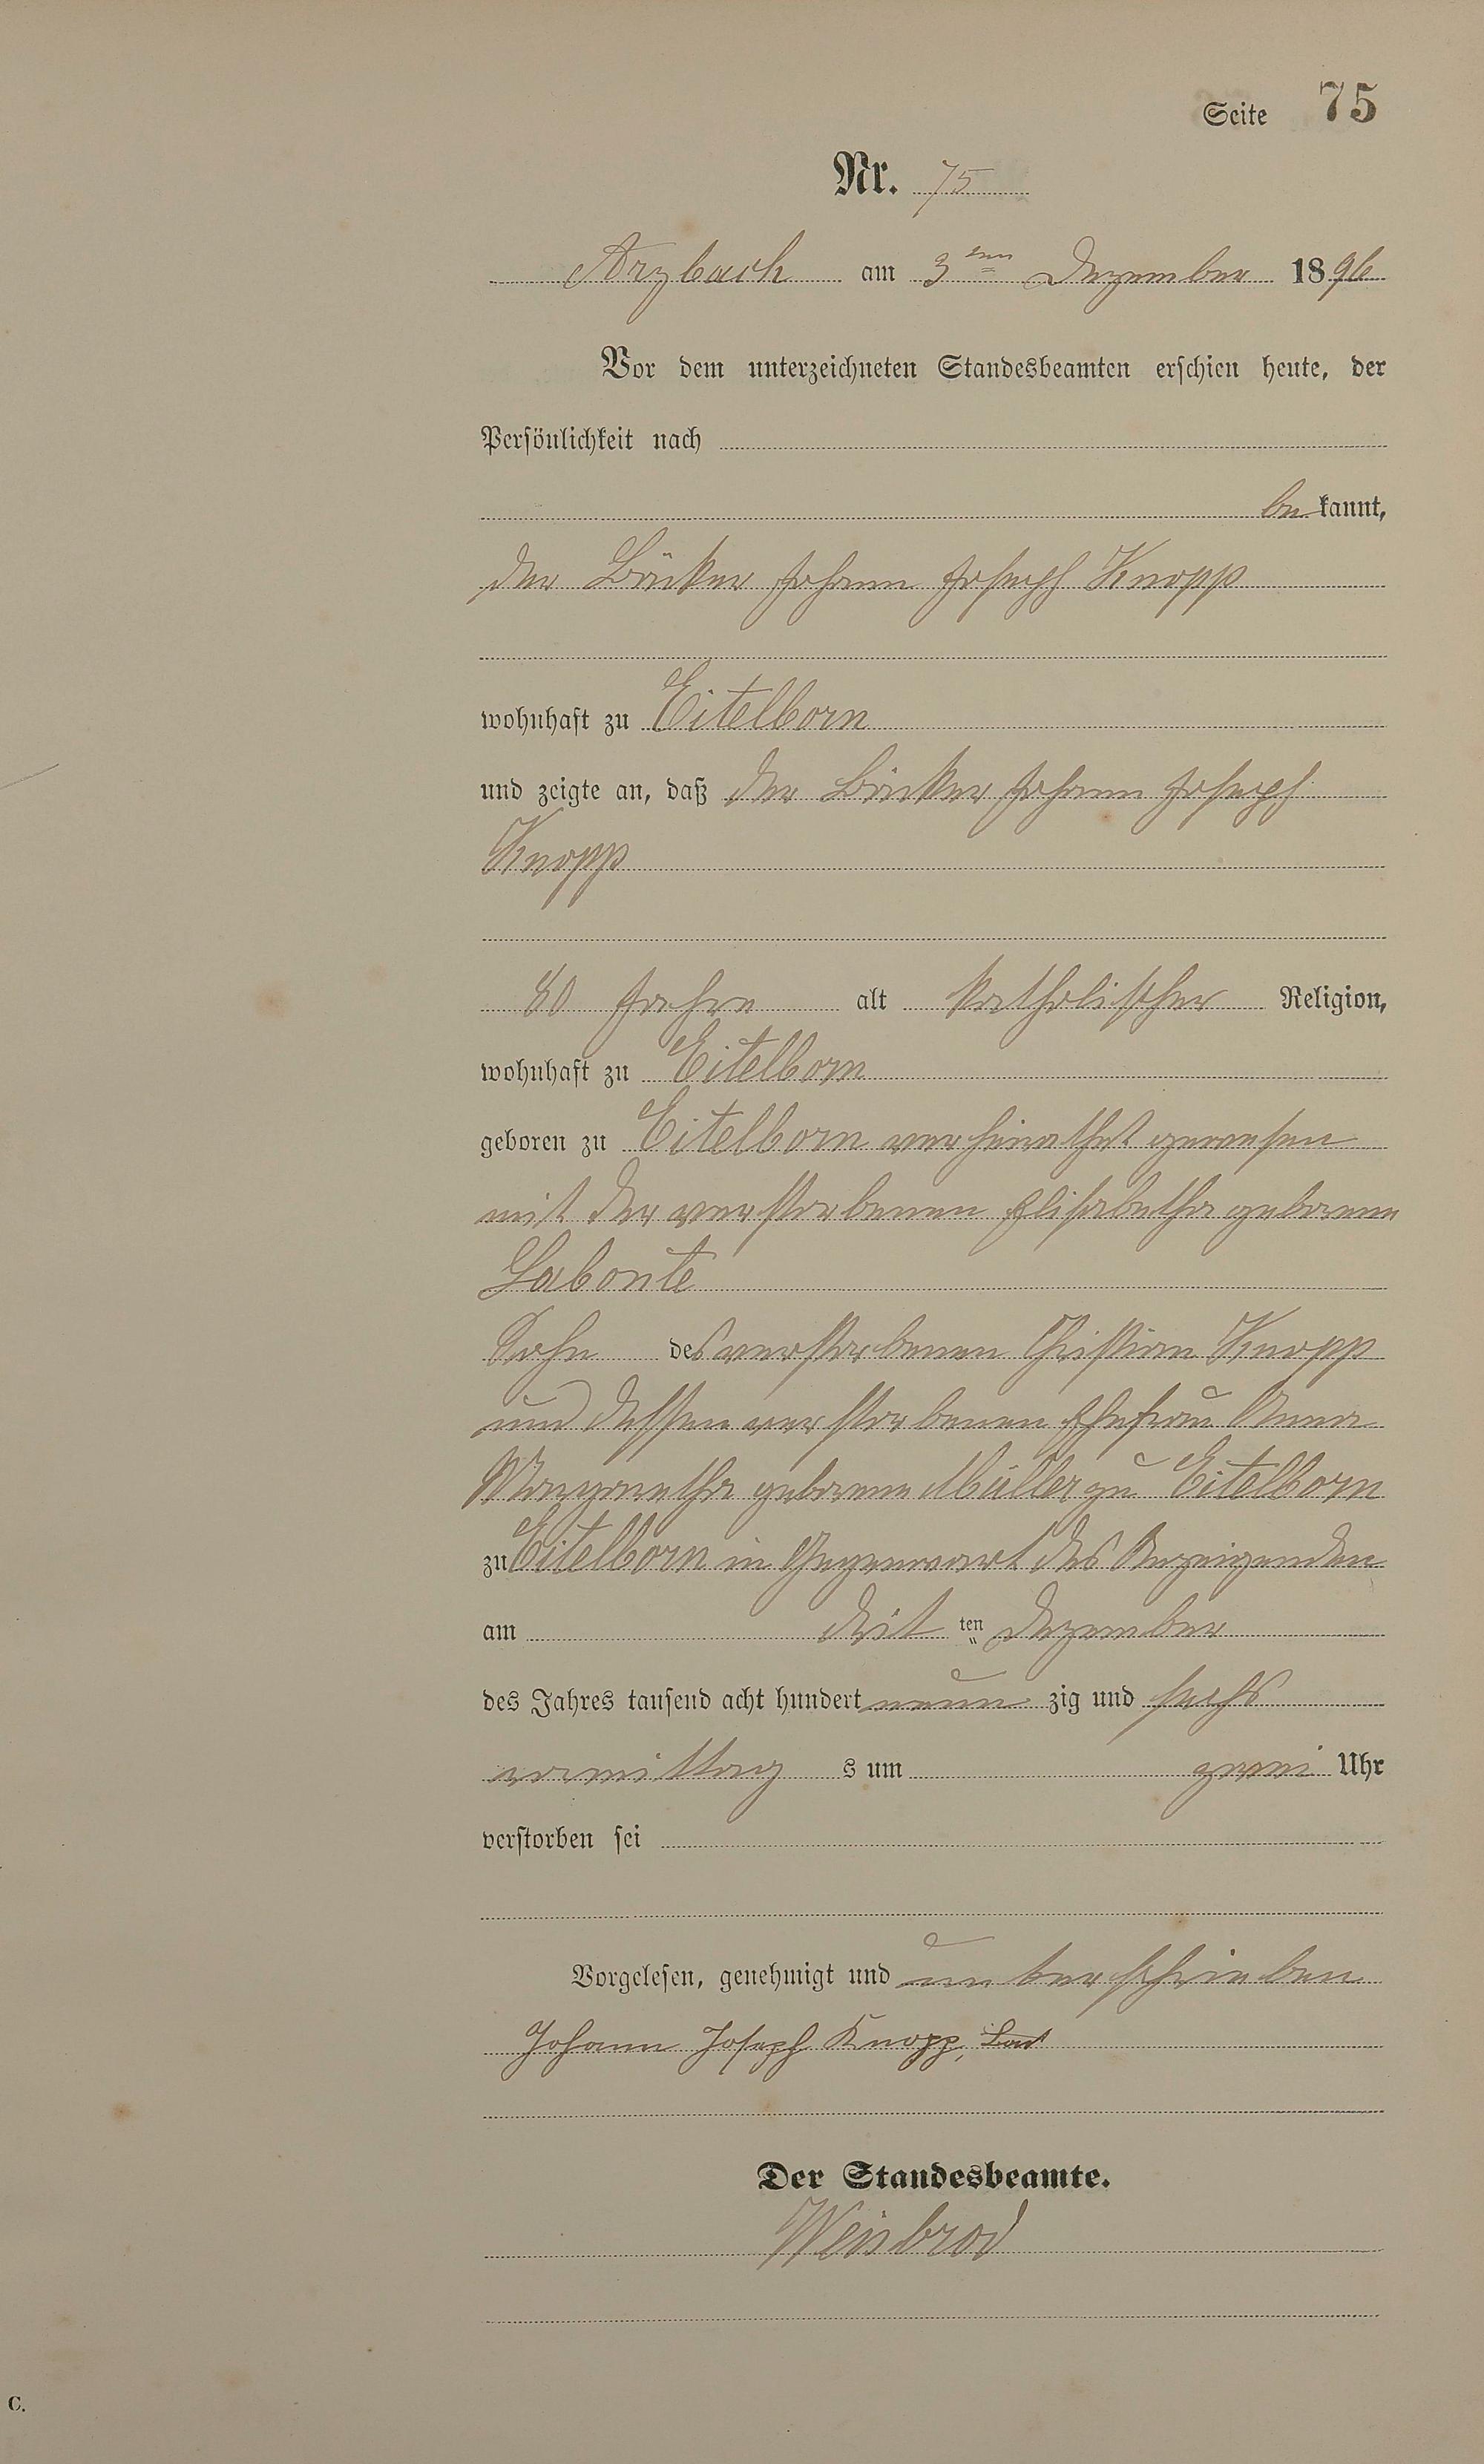 Seite 75
Nr. 75
Arzbach am 3ten Dezember 1896
Vor dem unterzeichneten Standesbeamten erschien heute, der
Persönlichkeit nach
bekannt,
der Bäcker Johann Joseph Knopp
wohnhaft zu Eitelborn
und zeigte an, daß der Bäcker Johann Joseph
Knopp
80 Jahre alt katholischer Religion,
wohnhaft zu Eitelborn
geboren zu Eitelborn verheirathet gewesen
mit der verstorbenen Elisabetha geborene
Labonte
Sohn des verstorbenen Christian Knopp
und dessen verstorbenen Ehefrau Anna
Margaretha geborene Müller zu Eitelborn
zu Eitelborn in Gegenwart des Anzeigenden
am drit ten Dezember
des Jahres tausend acht hundert neun zig und sechs
vormittag s um zwei Uhr
verstorben sei
Vorgelesen, genehmigt und unterschrieben
Johann Joseph Knopp,
Der Standesbeamte.
Weisbrod
C.